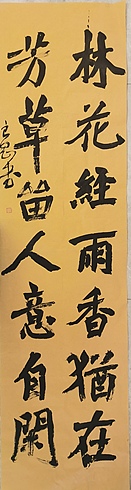 林花經雨香猶在
芳草留人意自閑